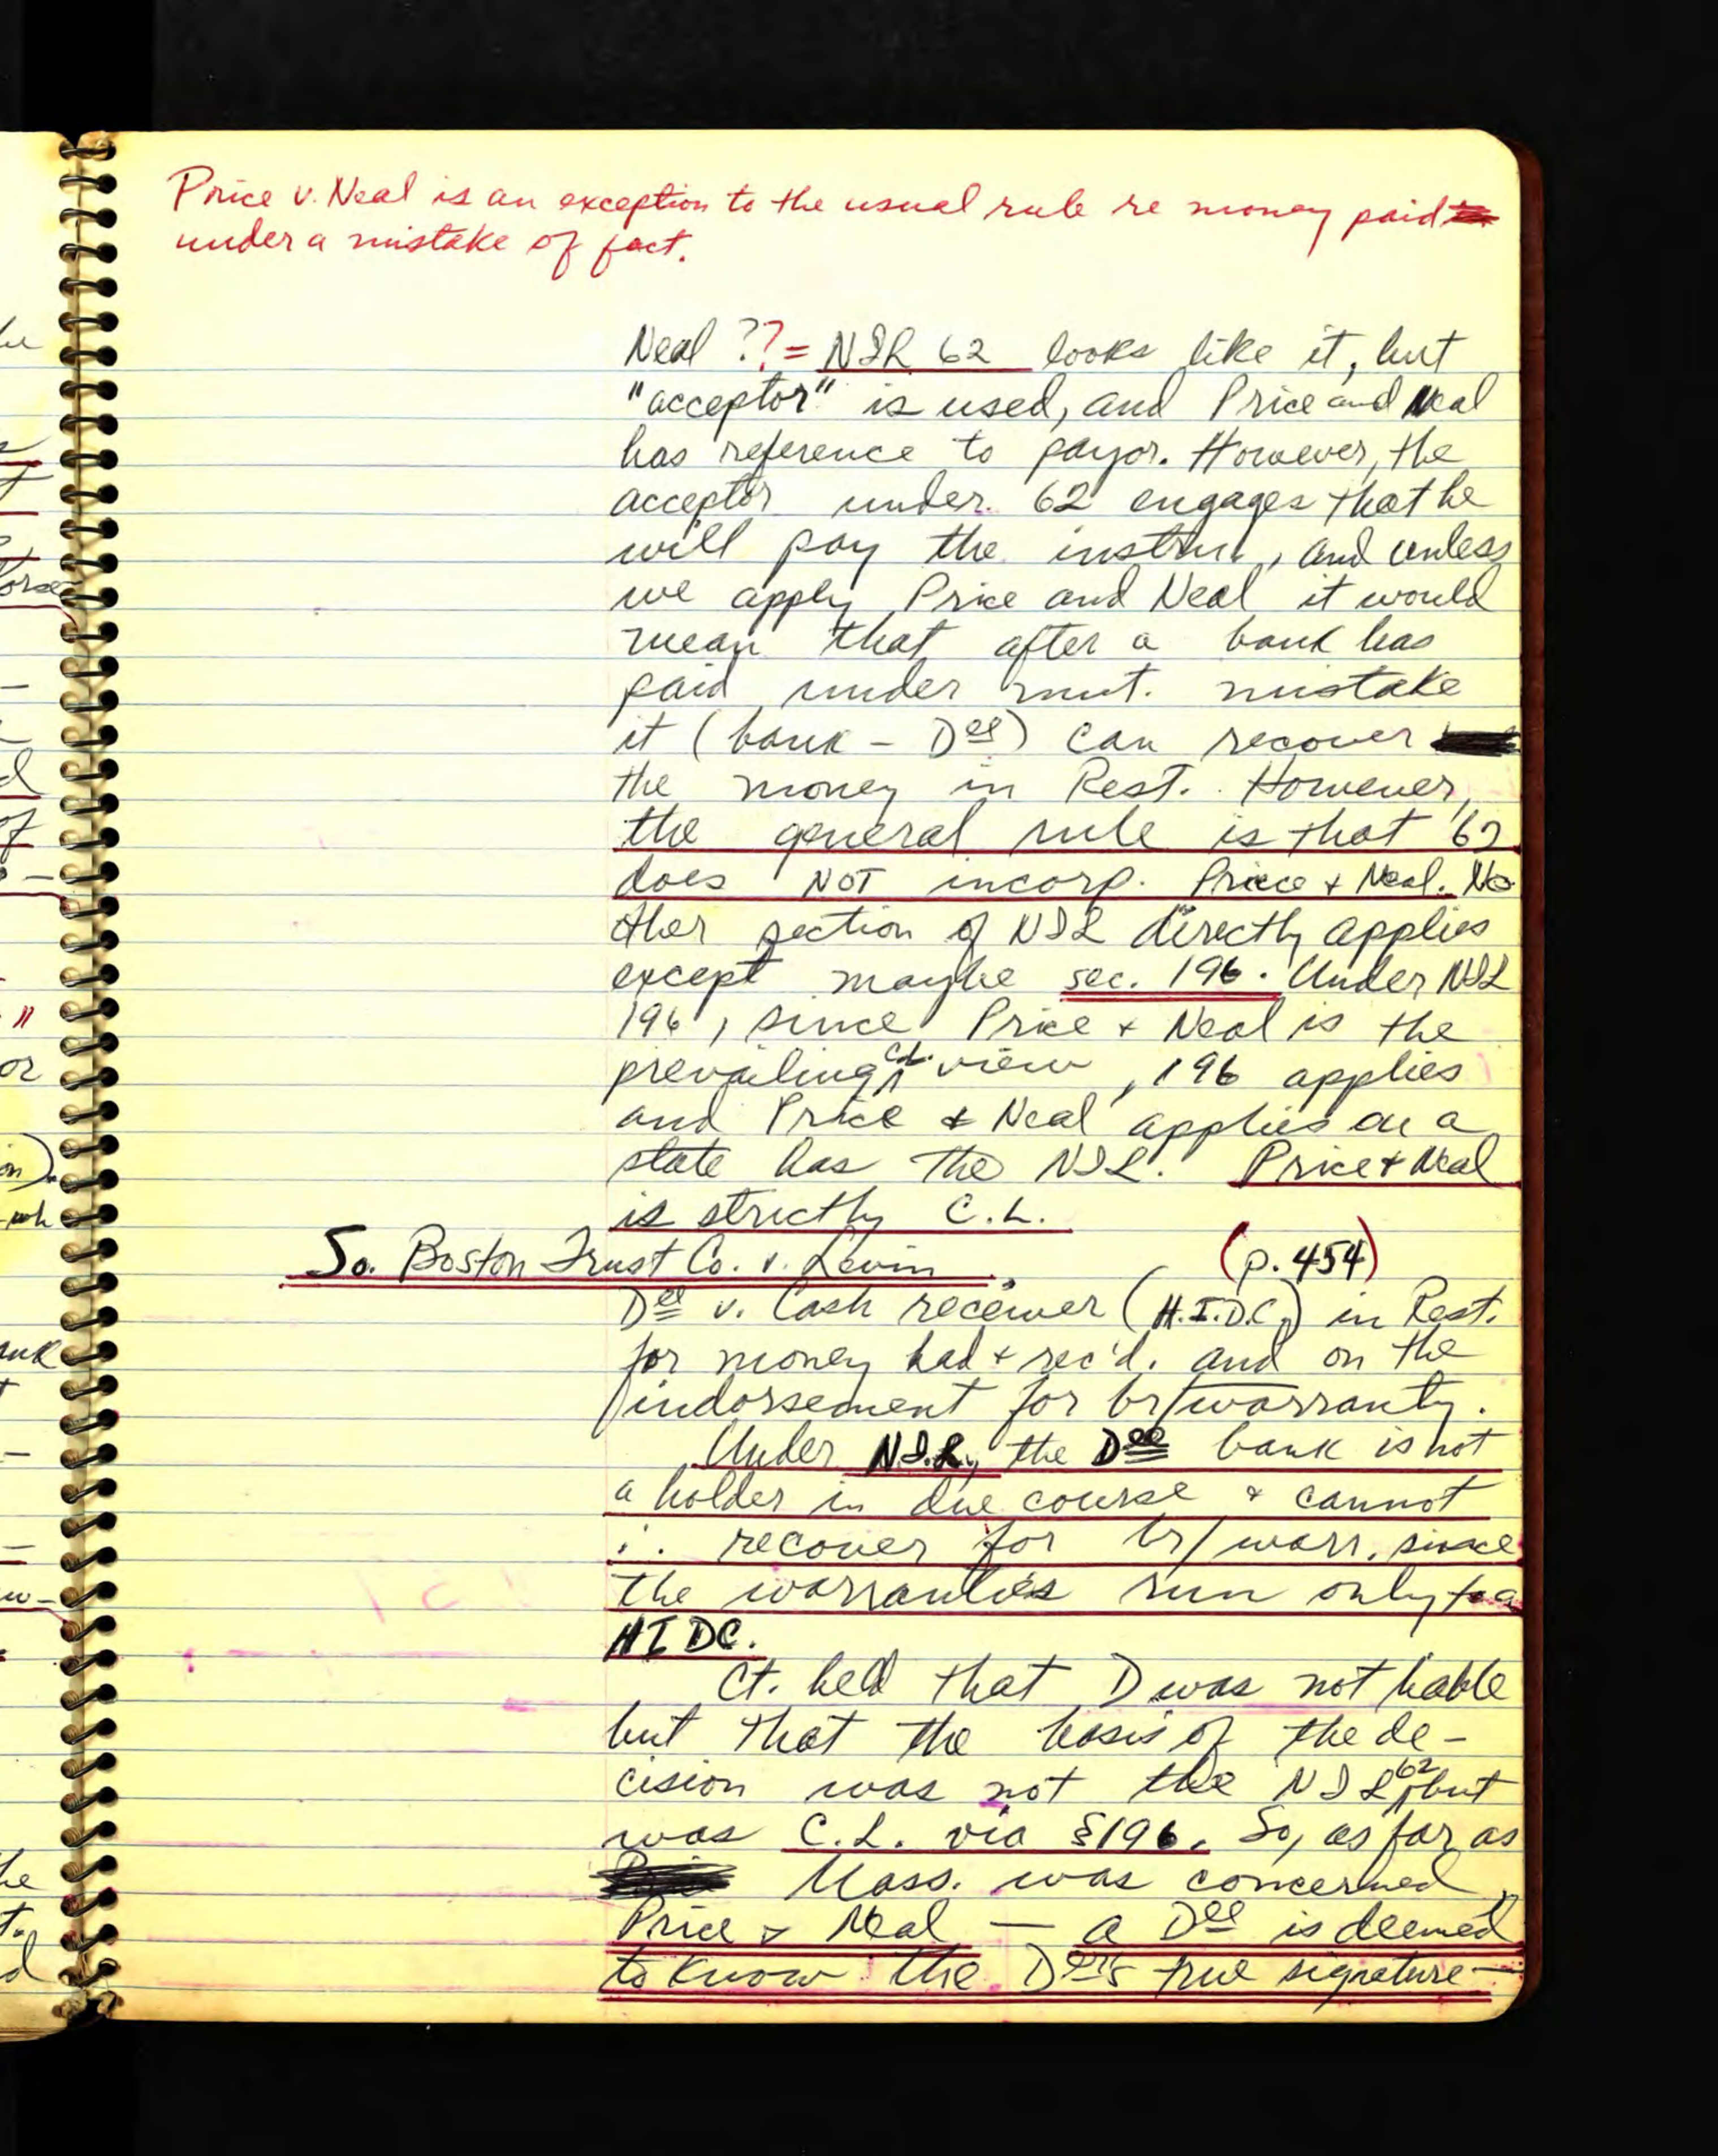 Price v. Neal is an exception to the usual rule re money paid
under a mistake of fact.
Neal ??= NIL 62 looks like it, but
"acceptor" is used, and Price and Neal
has reference to payor. However, the
acceptor under 62 engages that he
will pay the instru., and unless
we apply Price and Neal it would
mean that after a bank has
paid under mut. mistake
it (bank - Dee) can recover
the money in Rest. However,
the general rule is that 62
does NOT incorp. Price & Neal. No
other section of NIL directly applies
except maybe sec. 196. Under NIL
196, since Price & Neal is the
prevailing C.L. view, 196 applies
and Price & Neal applies on a
state has the NIL. Price & Neal
is strictly C.L.
So. Boston Trust Co. v. Levin. (p. 454)
Dee v. Cash receiver (H.I.D.C.) in Rest.
for money had & rec'd. and on the
indorsement for br/warranty.
Under N.I.L., the Dee bank is not
a holder in due course & cannot
∴ recover for br/warr. since
the warranties run only to a
HIDC.
Ct. held that D was not liable
but that the basis of the de-
cision was not the NIL 62, but
was C.L. via §196. So, as far as
Mass. was concerned,
Price & Neal — a Dee is deemed
to know the Der's true signature —